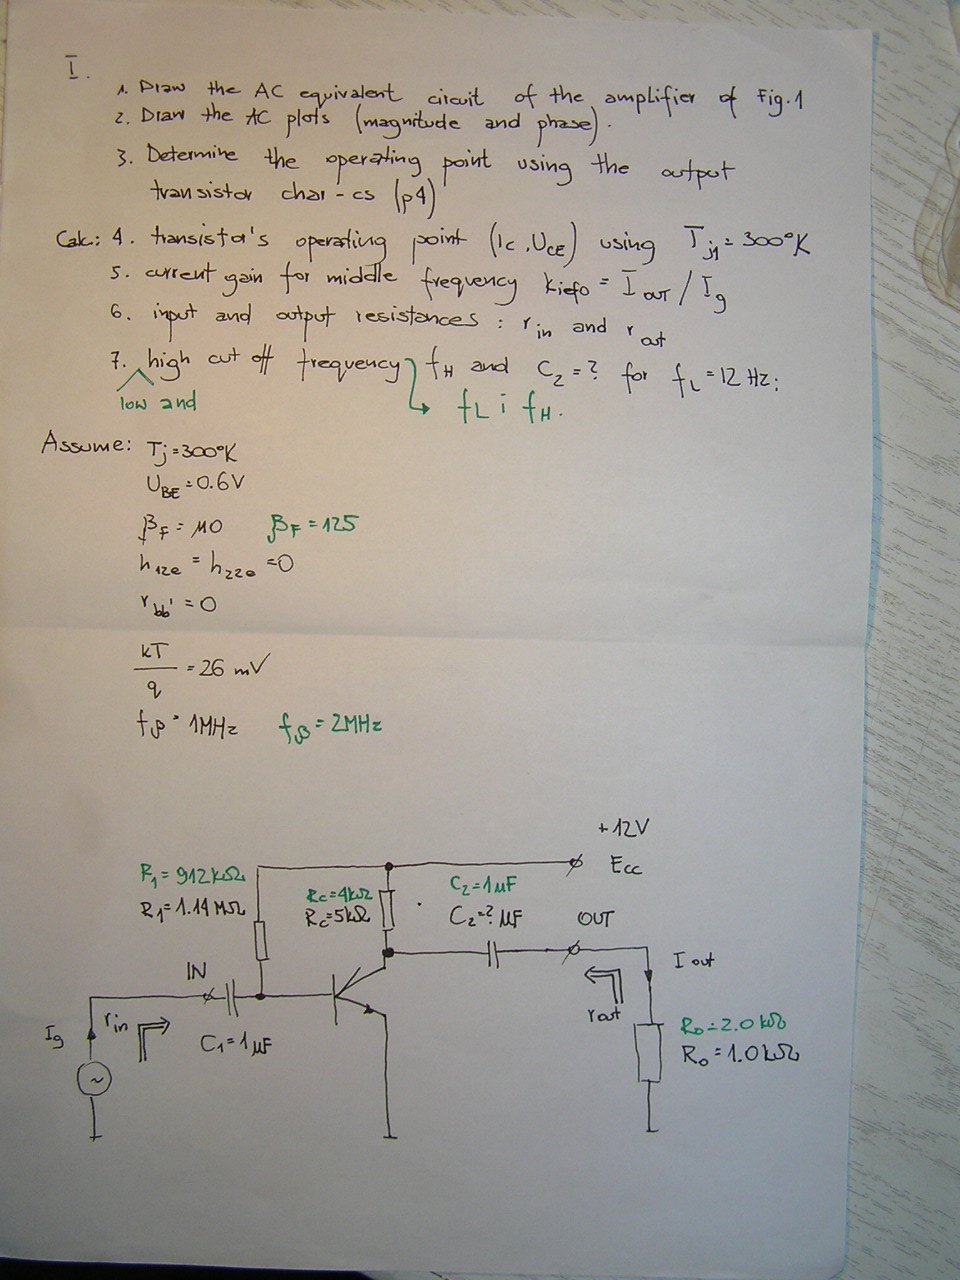 I.
1. Draw the AC equivalent circuit of the amplifier of Fig.1
2. Draw the AC plots (magnitude and phase).
3. Determine the operating point using the output
transistor char-cs (p4)
Calc: 4. transistor's operating point (Ic, UCE) using Tj1=300°K
5. current gain for middle frequency kiefo = IOUT / Ig
6. input and output resistances: rin and rout
7. high cut off frequency fH and C2=? for fL=12Hz;
low and
fL i fH.
Assume: Tj=300°K
UBE=0.6V
βF=110 βF=125
h12e = h22e =0
rbb' = 0
kT/q = 26 mV
fβ = 1MHz fβ=2MHz
+12V
Ecc
R1=912kΩ
R1=1.14MΩ
Rc=4kΩ
Rc=5kΩ
C2=1μF
C2=? μF
OUT
IN
I out
rin
rout
Ig
C1=1μF
Ro=2.0kΩ
Ro=1.0kΩ